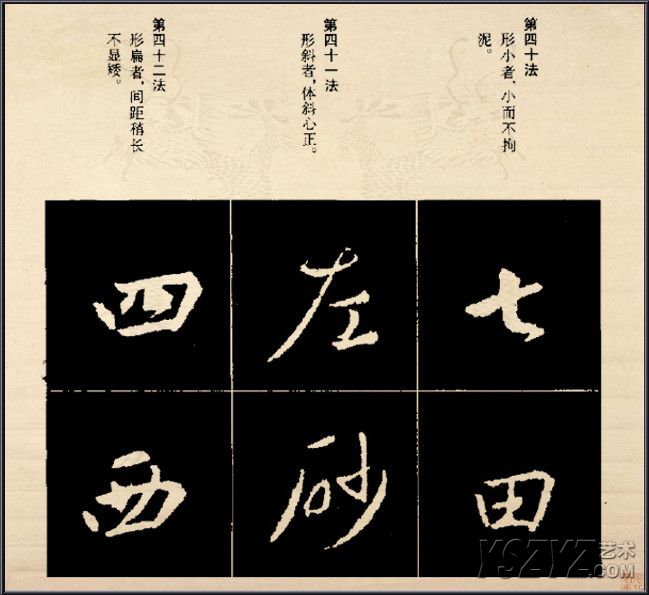 第四十法
形小者，小而不拘
泥。
第四十一法
形斜者，体斜心正。
第四十二法
形扁者，间距稍长
不显矮。
七
田
左
砂
四
西
YSZYZ艺术
.COM